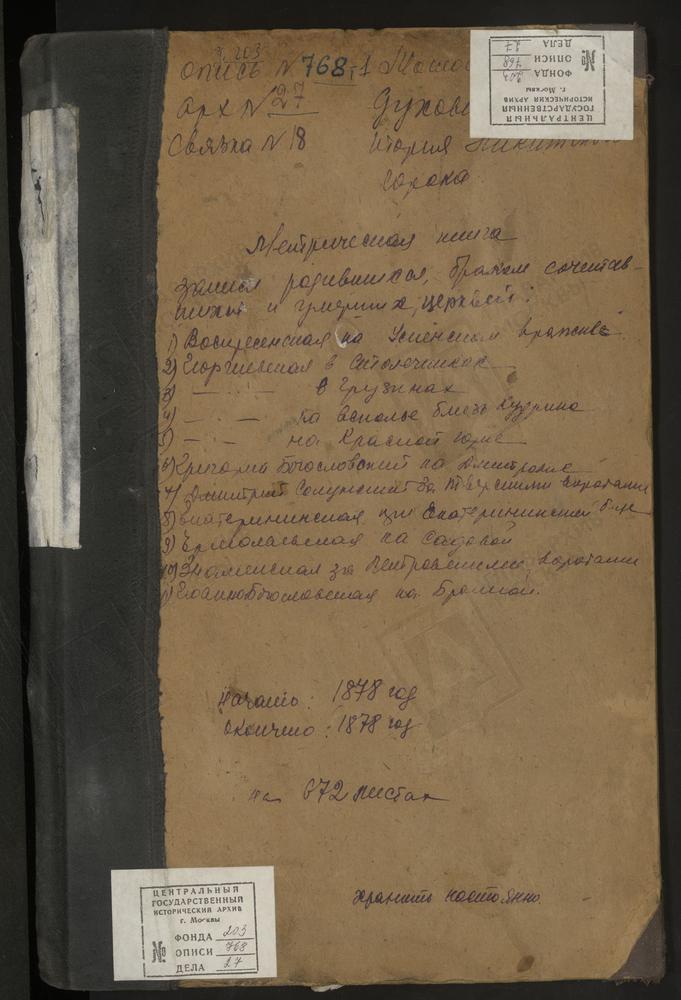 ф. 203
опись № 768-1 Москов
арх № 27 Духовн
Связка № 18 Никитского
сорока
Метрическая книга
записи родившихся, браком сочетав-
шихся и умерших, церквей:
1) Воскресенская на Успенском вражке
2) Георгиевская в Столешниках
3) — — в Грузинах
4) — — на Всполье близь Кудрино
5) — — на Красной горке
6) Григорий Богословский на Дмитровке
7) Дмитрий Солунский за Тверскими воротами
8) Екатерининская при Екатерининской
9) Ермолаевская на Садовой
10) Знаменская за Петровскими воротами
11) Иоанно Богословская на Бронной.
начато: 1878 год
окончено: 1878 год
на 672 листах
хранить постоянно.
ЦЕНТРАЛЬНЫЙ
ГОСУДАРСТВЕННЫЙ
ИСТОРИЧЕСКИЙ АРХИВ
г. Москвы
№ ФОНДА 203
ОПИСИ 768
ДЕЛА 27
ЦЕНТРАЛЬНЫЙ
ГОСУДАРСТВЕННЫЙ
ИСТОРИЧЕСКИЙ АРХИВ
г. Москвы
№ ФОНДА 203
ОПИСИ 768
ДЕЛА 27